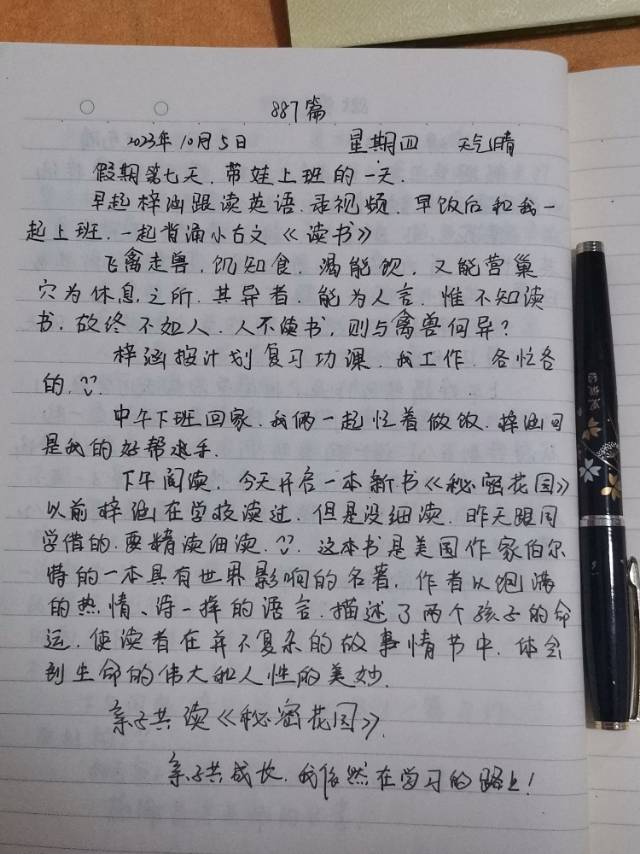 887篇
2023年10月5日 星期四 天气晴
假期第七天.带娃上班的一天.
早起梓涵跟读英语.录视频.早饭后和我一
起上班.一起背诵小古文《读书》
飞禽走兽.饥知食.渴能饮.又能营巢
穴为休息之所.其异者.能为人言.惟不知读
书.故终不如人.人不读书,则与禽兽何异?
梓涵按计划复习功课.我工作.各忙各
的.
中午下班回家.我俩一起忙着做饭.梓涵可
是我的好帮手.
下午阅读.今天开启一本新书《秘密花园》
以前梓涵在学校读过.但是没细读.昨天跟同
学借的.要精读细读.这本书是美国作家伯尔
特的一本具有世界影响的名著.作者以饱满
的热情、诗一样的语言.描述了两个孩子的命
运.使读者在并不复杂的故事情节中.体会
到生命的伟大和人性的美妙.
亲子共读《秘密花园》.
亲子共成长.我依然在学习的路上!